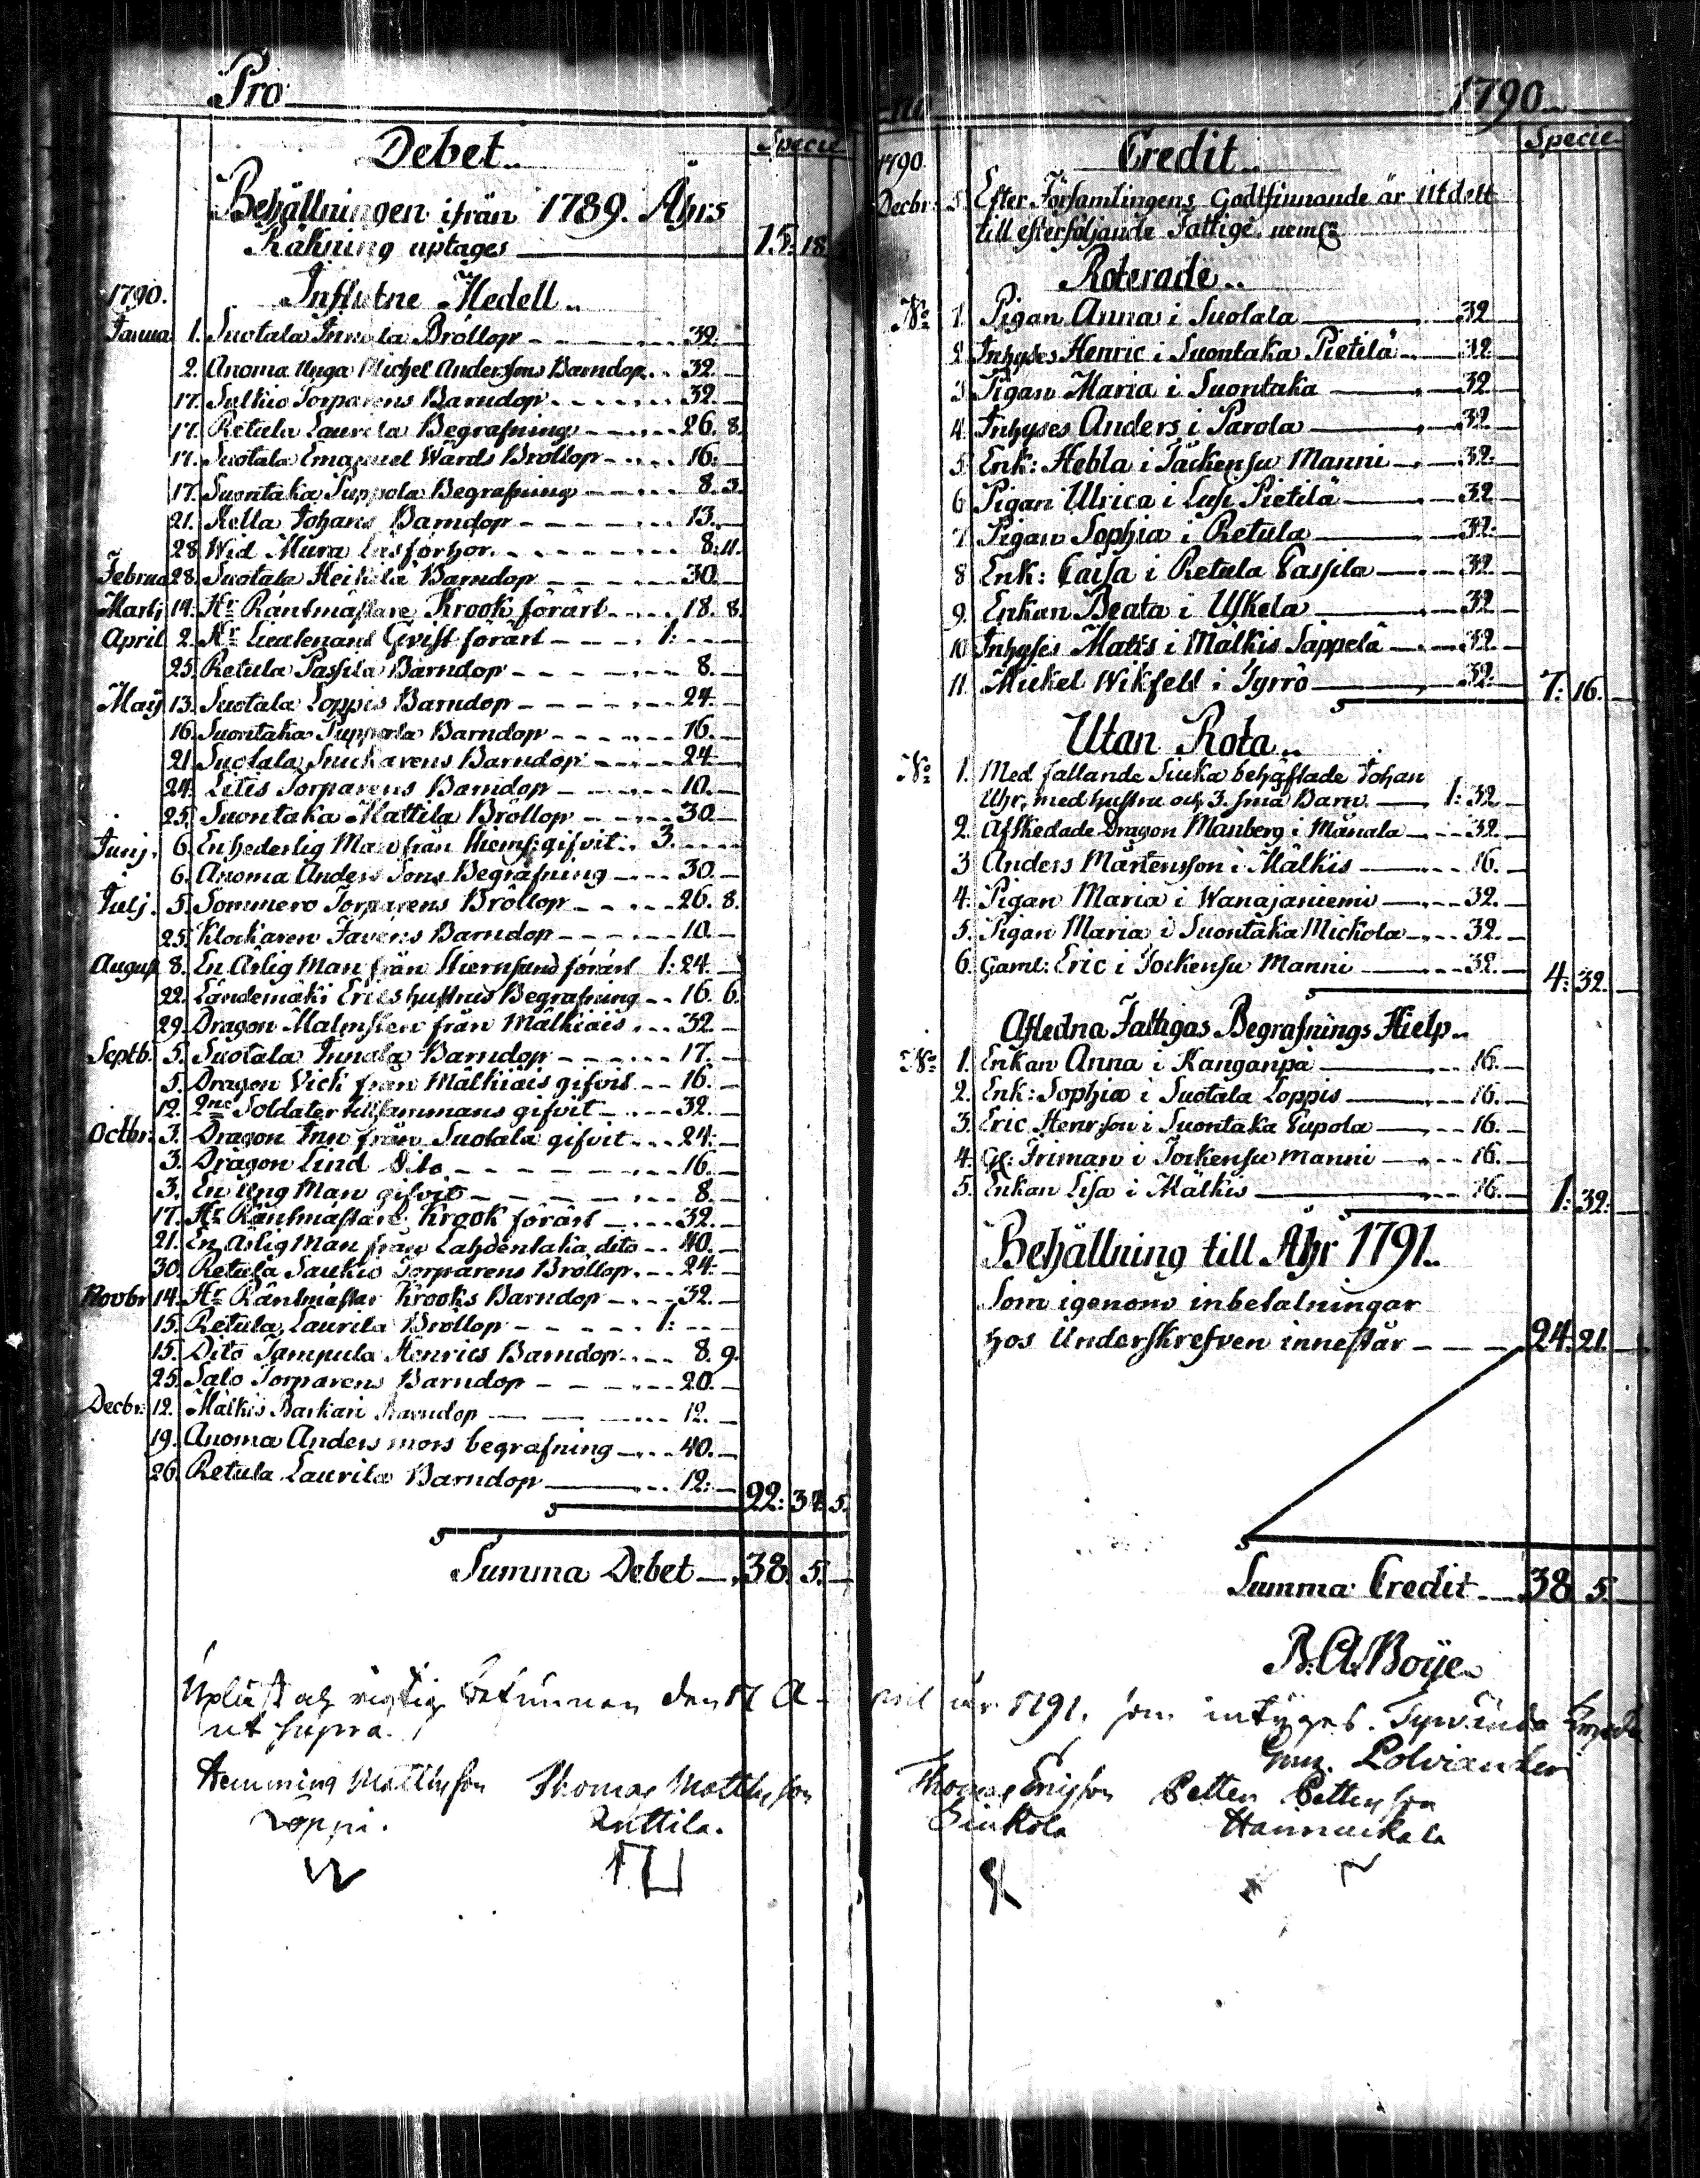 Pro Anno 1790
Debet Specie
Behållningen ifrån 1789. Åhrs
Räkning uptages 15: 18
1790. Influtne Medell
Janua 1. Suotala Innala Bröllop 32.
2. Anoma Unga Michel Anderssons Barndop 32.
17. Sulkio Torparens Barndop 32
17. Retula Laurila Begrafning 26. 8.
17. Suotala Emanuel Wårds Bröllop 16.
17. Suontaka Puppola Begrafning 8. 3.
21. Kella Johans Barndop 13.
28 Wid Mura Läsförhör 8: 11.
Februa 28. Suotala Heikilä Barndop 30.
Martj 14. Hr Räntmästare Krook förärt 18. 8.
April 2. Hr Lieutenant Qvist förärt 1:
25. Retula Passila Barndop 8.
Maÿ 13. Suotala Loppis Barndop 24.
16. Suontaka Puppola Barndop 16.
21. Suotala Barndop 24
24. Letis Torparens Barndop 10.
25. Suontaka Mattila Bröllop 30
Junj. 6. En hederlig Man från gifvit 3.
6. Anoma Anders Sons Begrafning 30.
Julj. 5. Sommero Torparens Bröllop 26. 8.
25. Klockaren Favens Barndop 10.
August 8. En Ärlig Man från förärt 1: 24.
22. Ländemäki Erics hustrus Begrafning 16. 6.
29. Dragon Malmsten från Mälkiäis 32
Septb. 5. Suotala Innala Barndop 17.
5. Dragon Vick från Mälkiäis gifvit 16.
12. 2ne Soldater tillsammans gifvit 32.
Octbr. 3. Dragon Inn från Suotala gifvit 24.
3. Dragon Lind dito 16.
3. En Ung Man gifvit 8.
17. Hr Räntmästare Krook förärt 32.
21. En Ärlig Man från Lahdentaka dito 40.
30. Retula Saukio Torparens Bröllop 24.
Novbr 14. Hr Räntmästar Krooks Barndop 32.
15. Retula Laurila Bröllop 1:
15. Dito Tampula Henrics Barndop 8. 9.
25. Salo Torparens Barndop 20.
Decbr. 12. Mälkis Barkari Barndop 12.
19. Anoma Anders mors begrafning 40.
26. Retula Laurila Barndop 12.
22: 34. 5.
Summa Debet 38. 5.
1790. Credit Specie
Decbr. 5. Efter Församlingens Godtfinnande är Utdelt
till efterföljande Fattige, neml:
Roterade
No 1. Pigan Anna i Suotala 32
2. Inhyses Henric i Suontaka Pietilä 32
3. Pigan Maria i Suontaka 32
4. Inhyses Anders i Parola 32.
5. Enk: Hebla i Jäckensu Manni 32.
6 Pigan Ulrica i Lusi Pietilä 32
7. Pigan Sophia i Retula 32.
8 Enk: Caisa i Retula Passila 32
9. Enkan Beata i Uskela 32
10 Inhyses Matts i Mälkis Sappelä 32.
11. Mickel Wikfelt i Tyrrö 32. 7: 16.
Utan Rota
No 1. Med fallande Siuka behäftade Johan
Uhr, med hustru och 3. små Barn 1: 32
2. Afskedade Dragon Manberg i Mänala 32.
3 Anders Mårtensson i Mälkis 16.
4. Pigan Maria i Wanajaniemi 32.
5. Pigan Maria i Suontaka Mickola 32.
6. Gaml: Eric i Jockensu Manni 32. 4: 32.
Afledna Fattigas Begrafnings Hielp
No 1. Enkan Anna i Kanganpä 16.
2. Enk: Sophia i Suotala Loppis 16.
3. Eric Henrsson i Suontaka Pupola 16.
4. Gl: Friman i Jockensu Manni 16.
5. Enkan Lisa i Mälkis 16. 1: 32.
Behållning till Åhr 1791.
Som igenom inbetalningar
hos Underskrefven innestår 24: 21.
Summa Credit 38. 5.
B: A: Boije
Upläst och rigtig befunnen den 17 April år 1791. som intÿgas. Tyrvändö
ut supra. Lolviander
Hemming Matthsson Thomas Matthsson Thomas Ericsson Petter Pettersson
Loppi. Ruttila. Eickola Hannuckala